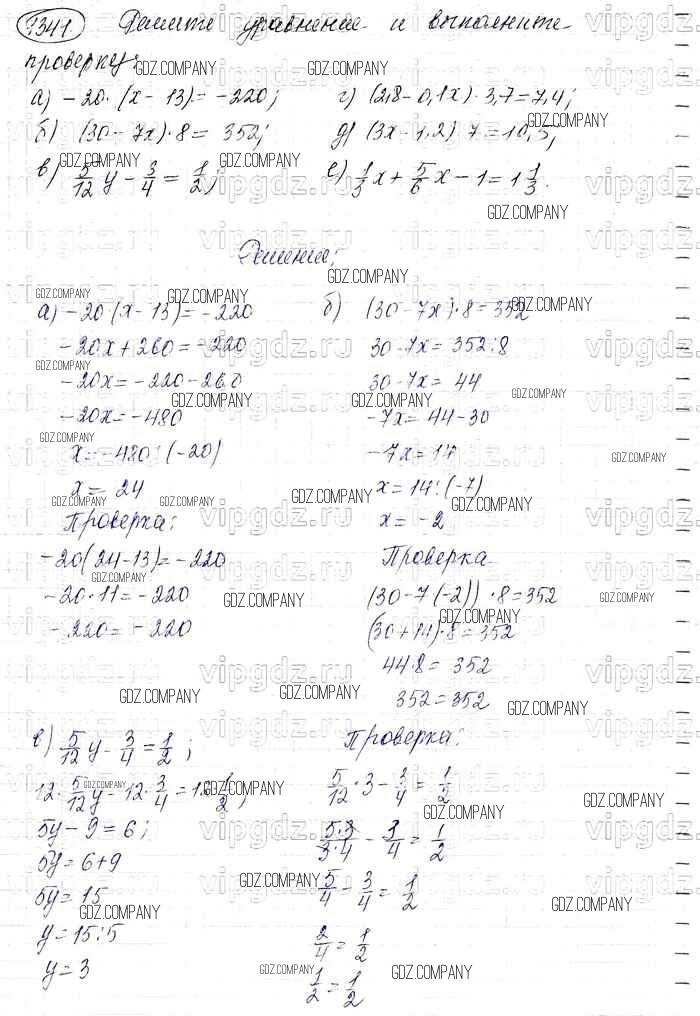 1341 Решите уравнение и выполните
проверку:
а) -20·(х-13)=-220; г) (2,8-0,1х)·3,7=7,4;
б) (30-7х)·8=352; д) (3х-1,2)·7=10,5;
в) 5/12 у - 3/4 = 1/2; е) 1/3 х + 5/6 х - 1 = 1 1/3.
Решение;
а) -20·(х-13)=-220
-20х+260=-220
-20х=-220-260
-20х=-480
х=-480:(-20)
х=24
Проверка:
-20(24-13)=-220
-20·11=-220
-220=-220
б) (30-7х)·8=352
30-7х=352:8
30-7х=44
-7х=44-30
-7х=14
х=14:(-7)
х=-2
Проверка
(30-7(-2))·8=352
(30+14)·8=352
44·8=352
352=352
в) 5/12 у - 3/4 = 1/2;
12·5/12 у - 12·3/4 = 12·1/2;
5у-9=6;
5у=6+9
5у=15
у=15:5
у=3
Проверка:
5/12·3 - 3/4 = 1/2
5·3/3·4 - 3/4 = 1/2
5/4 - 3/4 = 1/2
2/4 = 1/2
1/2 = 1/2
GDZ.COMPANY
vipgdz.ru